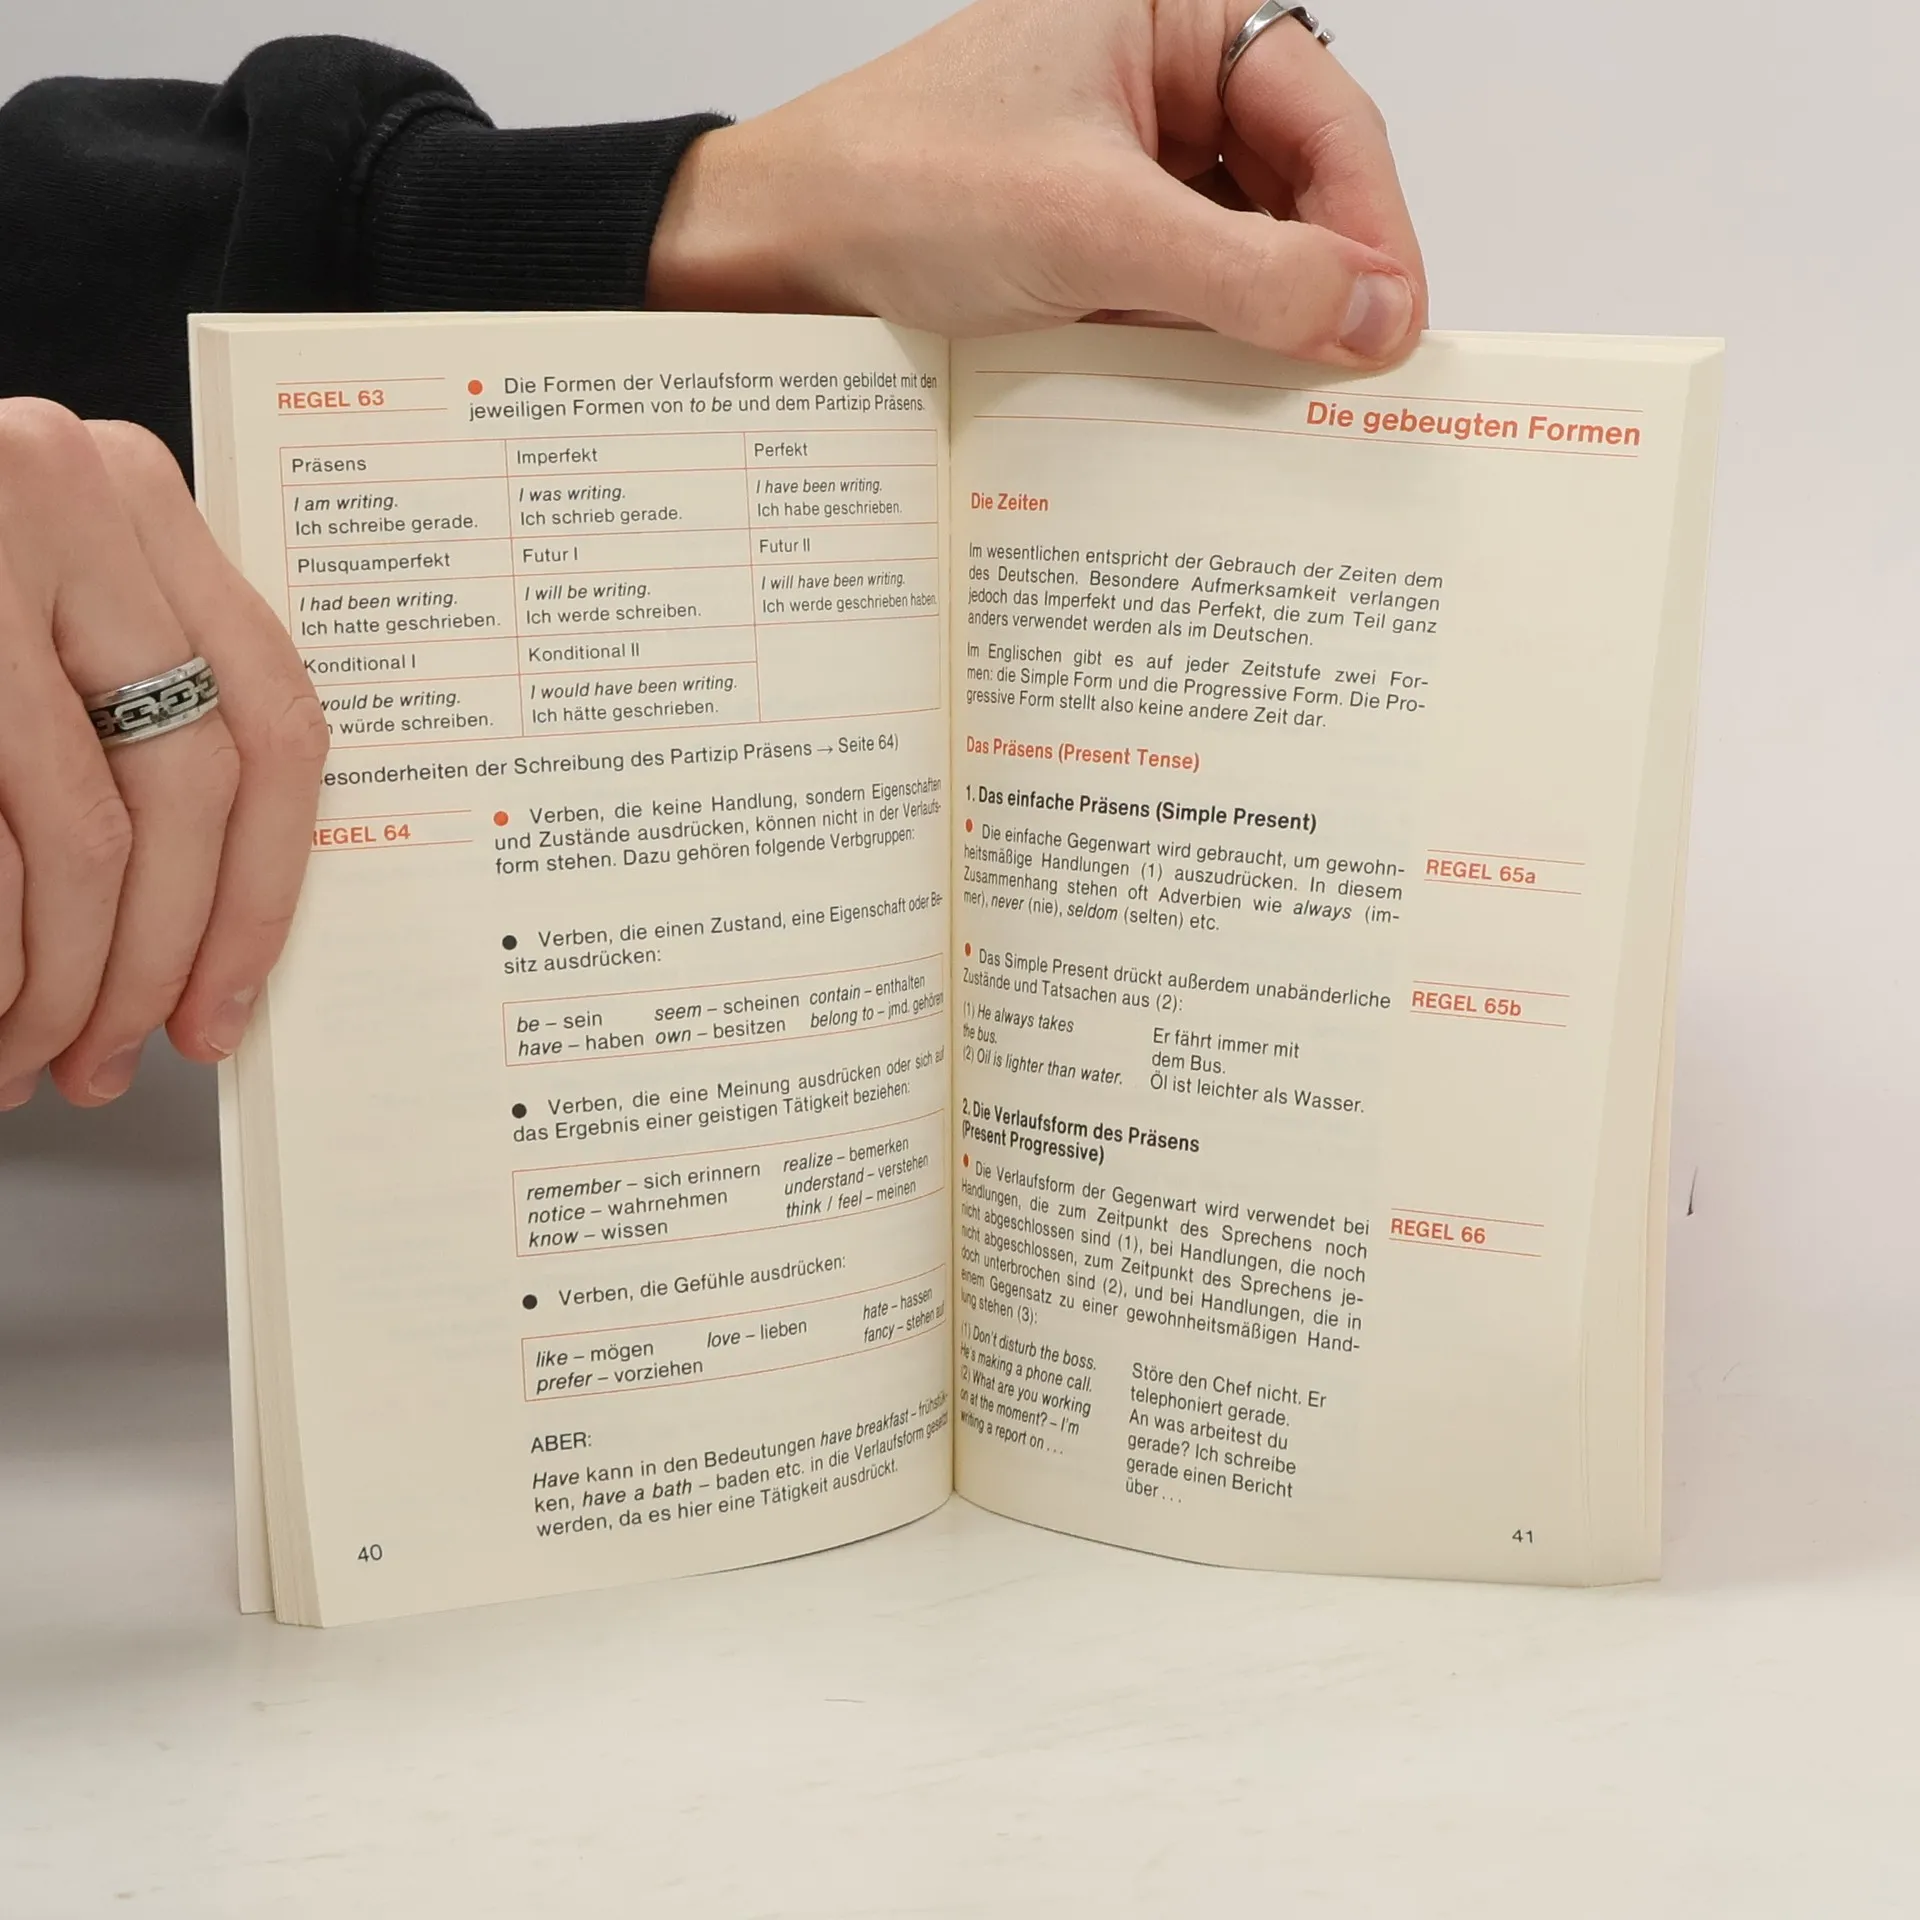 REGEL 63
● Die Formen der Verlaufsform werden gebildet mit den
jeweiligen Formen von to be und dem Partizip Präsens.
Präsens Imperfekt Perfekt
I am writing. I was writing. I have been writing.
Ich schreibe gerade. Ich schrieb gerade. Ich habe geschrieben.
Plusquamperfekt Futur I Futur II
I had been writing. I will be writing. I will have been writing.
Ich hatte geschrieben. Ich werde schreiben. Ich werde geschrieben haben.
Konditional I Konditional II
would be writing. I would have been writing.
würde schreiben. Ich hätte geschrieben.
esonderheiten der Schreibung des Partizip Präsens → Seite 64)
REGEL 64
● Verben, die keine Handlung, sondern Eigenschaften
und Zustände ausdrücken, können nicht in der Verlaufs-
form stehen. Dazu gehören folgende Verbgruppen:
● Verben, die einen Zustand, eine Eigenschaft oder Be-
sitz ausdrücken:
be – sein seem – scheinen contain – enthalten
have – haben own – besitzen belong to – jmd. gehören
● Verben, die eine Meinung ausdrücken oder sich auf
das Ergebnis einer geistigen Tätigkeit beziehen:
remember – sich erinnern realize – bemerken
notice – wahrnehmen understand – verstehen
know – wissen think / feel – meinen
● Verben, die Gefühle ausdrücken:
like – mögen love – lieben hate – hassen
prefer – vorziehen fancy – stehen auf
ABER:
Have kann in den Bedeutungen have breakfast – frühstük-
ken, have a bath – baden etc. in die Verlaufsform gesetzt
werden, da es hier eine Tätigkeit ausdrückt.
40
Die gebeugten Formen
Die Zeiten
Im wesentlichen entspricht der Gebrauch der Zeiten dem
des Deutschen. Besondere Aufmerksamkeit verlangen
jedoch das Imperfekt und das Perfekt, die zum Teil ganz
anders verwendet werden als im Deutschen.
Im Englischen gibt es auf jeder Zeitstufe zwei For-
men: die Simple Form und die Progressive Form. Die Pro-
gressive Form stellt also keine andere Zeit dar.
Das Präsens (Present Tense)
1. Das einfache Präsens (Simple Present)
● Die einfache Gegenwart wird gebraucht, um gewohn-
heitsmäßige Handlungen (1) auszudrücken. In diesem
Zusammenhang stehen oft Adverbien wie always (im-
mer), never (nie), seldom (selten) etc.
REGEL 65a
● Das Simple Present drückt außerdem unabänderliche
Zustände und Tatsachen aus (2):
REGEL 65b
(1) He always takes
the bus.
(2) Oil is lighter than water.
Er fährt immer mit
dem Bus.
Öl ist leichter als Wasser.
2. Die Verlaufsform des Präsens
(Present Progressive)
● Die Verlaufsform der Gegenwart wird verwendet bei
Handlungen, die zum Zeitpunkt des Sprechens noch
nicht abgeschlossen sind (1), bei Handlungen, die noch
nicht abgeschlossen, zum Zeitpunkt des Sprechens je-
doch unterbrochen sind (2), und bei Handlungen, die in
einem Gegensatz zu einer gewohnheitsmäßigen Hand-
lung stehen (3):
REGEL 66
(1) Don't disturb the boss.
He's making a phone call.
(2) What are you working
on at the moment? – I'm
writing a report on . . .
Störe den Chef nicht. Er
telephoniert gerade.
An was arbeitest du
gerade? Ich schreibe
gerade einen Bericht
über . . .
41